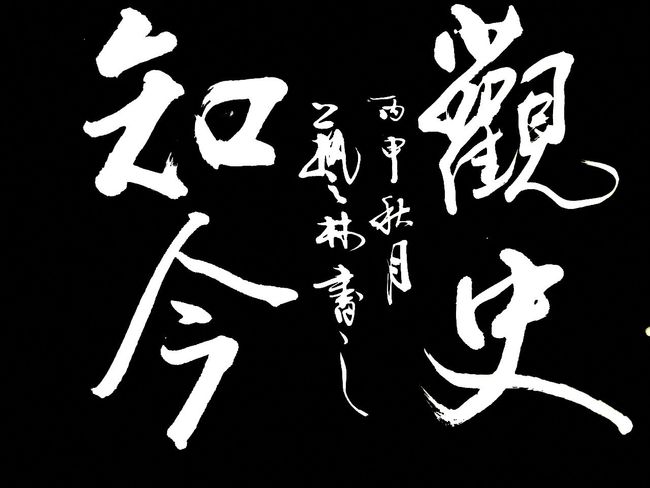 觀史
丙申秋月
藝林書之
知今